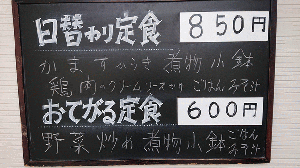 日替わり定食 850円
かますふらき 煮物 小鉢
鶏肉のクリームソースかけ ごはん みそ汁
おてがる定食 600円
野菜炒め 煮物 小鉢 ごはん みそ汁